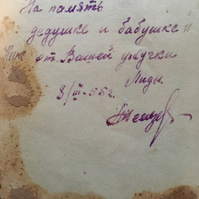 На память
дедушке и бабушке
от Вашей внучки
Лиды.
3/III-55г.